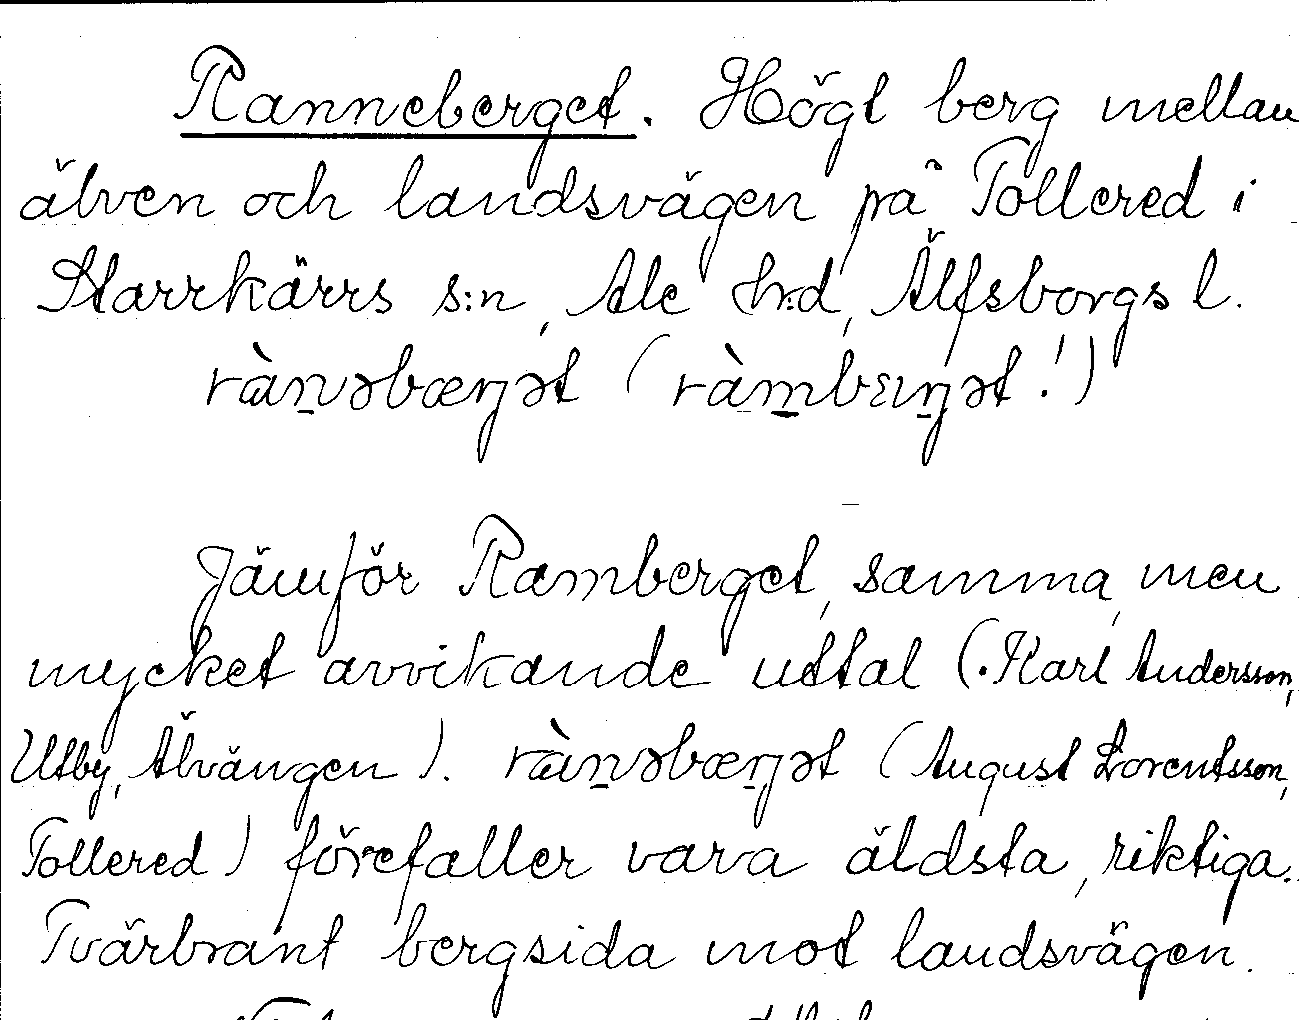 Ranneberget. Högt berg mellan
älven och landsvägen på Tollered i
Starrkärrs s:n, Ale h:d, Älfsborgs l.
ràn̲əbæŋət (ràm̲bæŋət!)
Jämför Ramberget, samma, men
mycket avvikande uttal (Karl Andersson,
Utby, Älvängen). ràn̲əbæŋət (August Lorentsson,
Tollered) förefaller vara äldsta, riktiga.
Tvärbrant bergsida mot landsvägen.